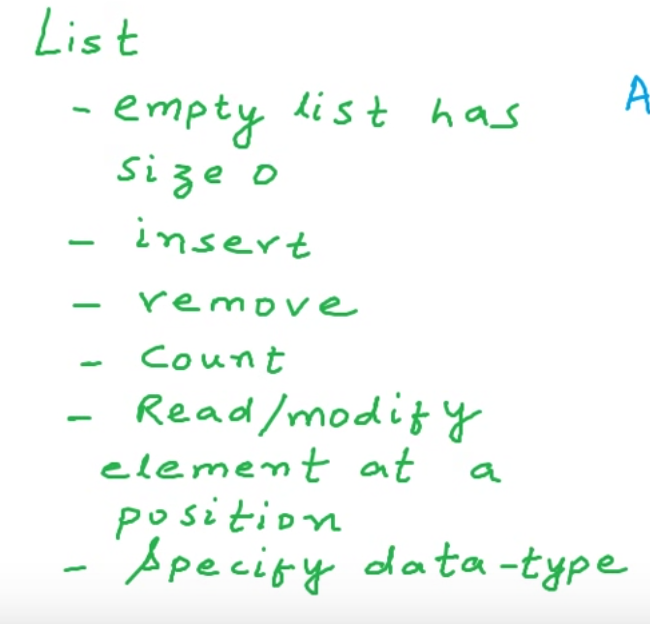 List
- empty list has
A
size 0
- insert
- remove
- Count
- Read/modify
element at a
position
- Specify data-type